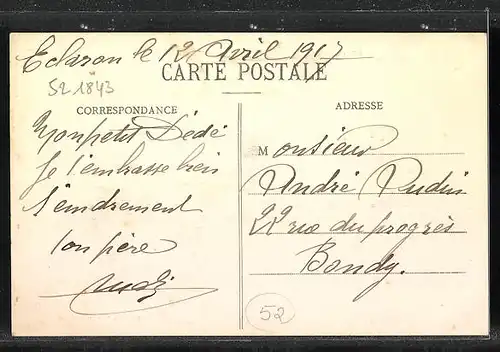 Eclaron le 12 Avril 1917
CARTE POSTALE
52 1843
CORRESPONDANCE
Mon petit Dédé
Je t'embrasse bien
tendrement
ton père
ADRESSE
Monsieur
André Rudin
22 rue du progrès
Bondy.
52